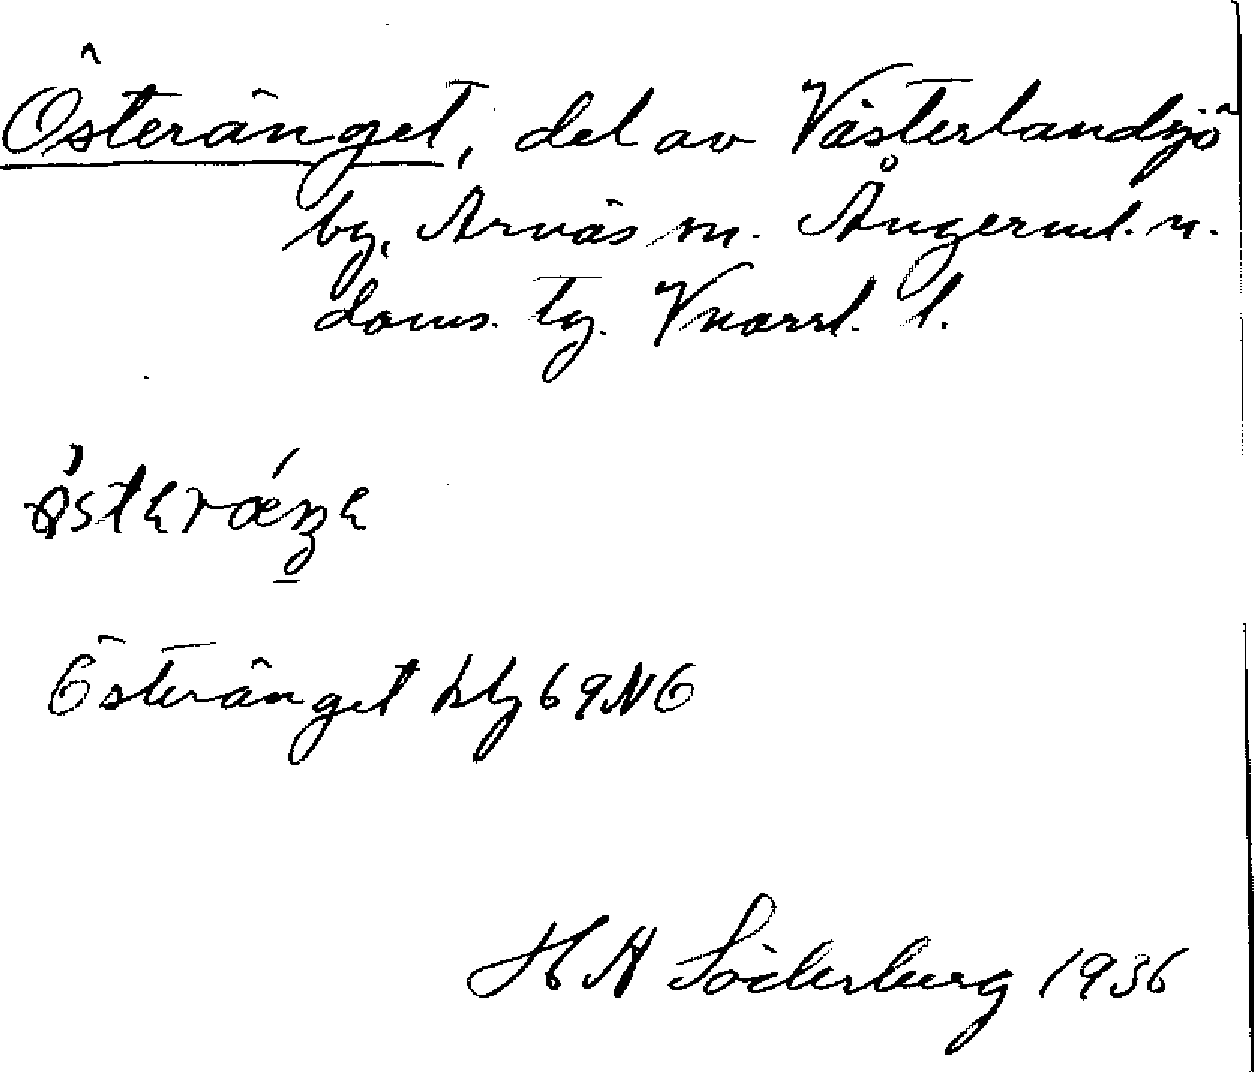 Österänget, del av Västerlandsjö
by, Arnäs sn. Ångerml. n.
doms. tg. Vnorrl. l.
Österänget blg 69NO
H A Söderberg 1936